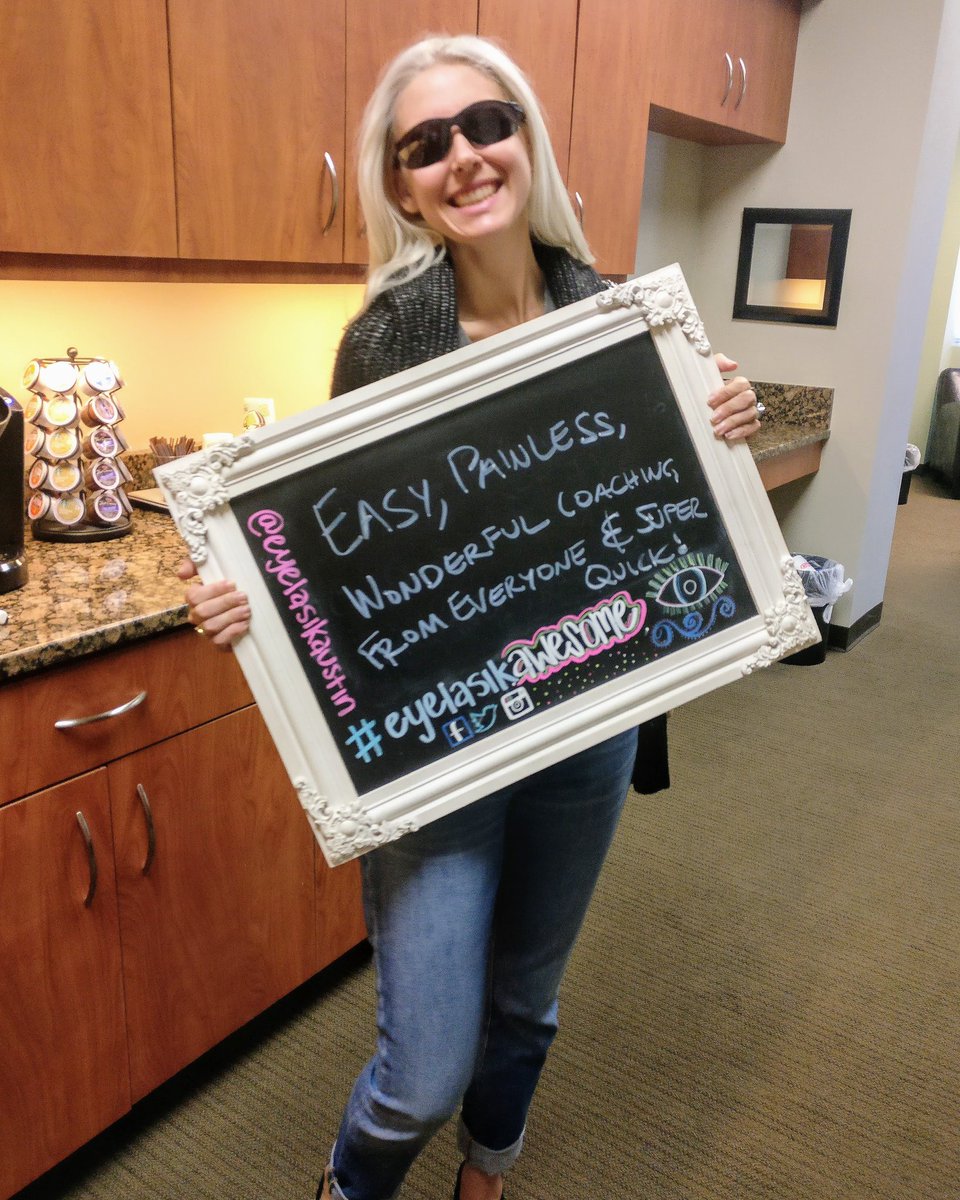 EASY, PAINLESS,
WONDERFUL COACHING,
FROM EVERYONE & SUPER
QUICK!
@eyelasikaustin
#eyelasikawesome
f